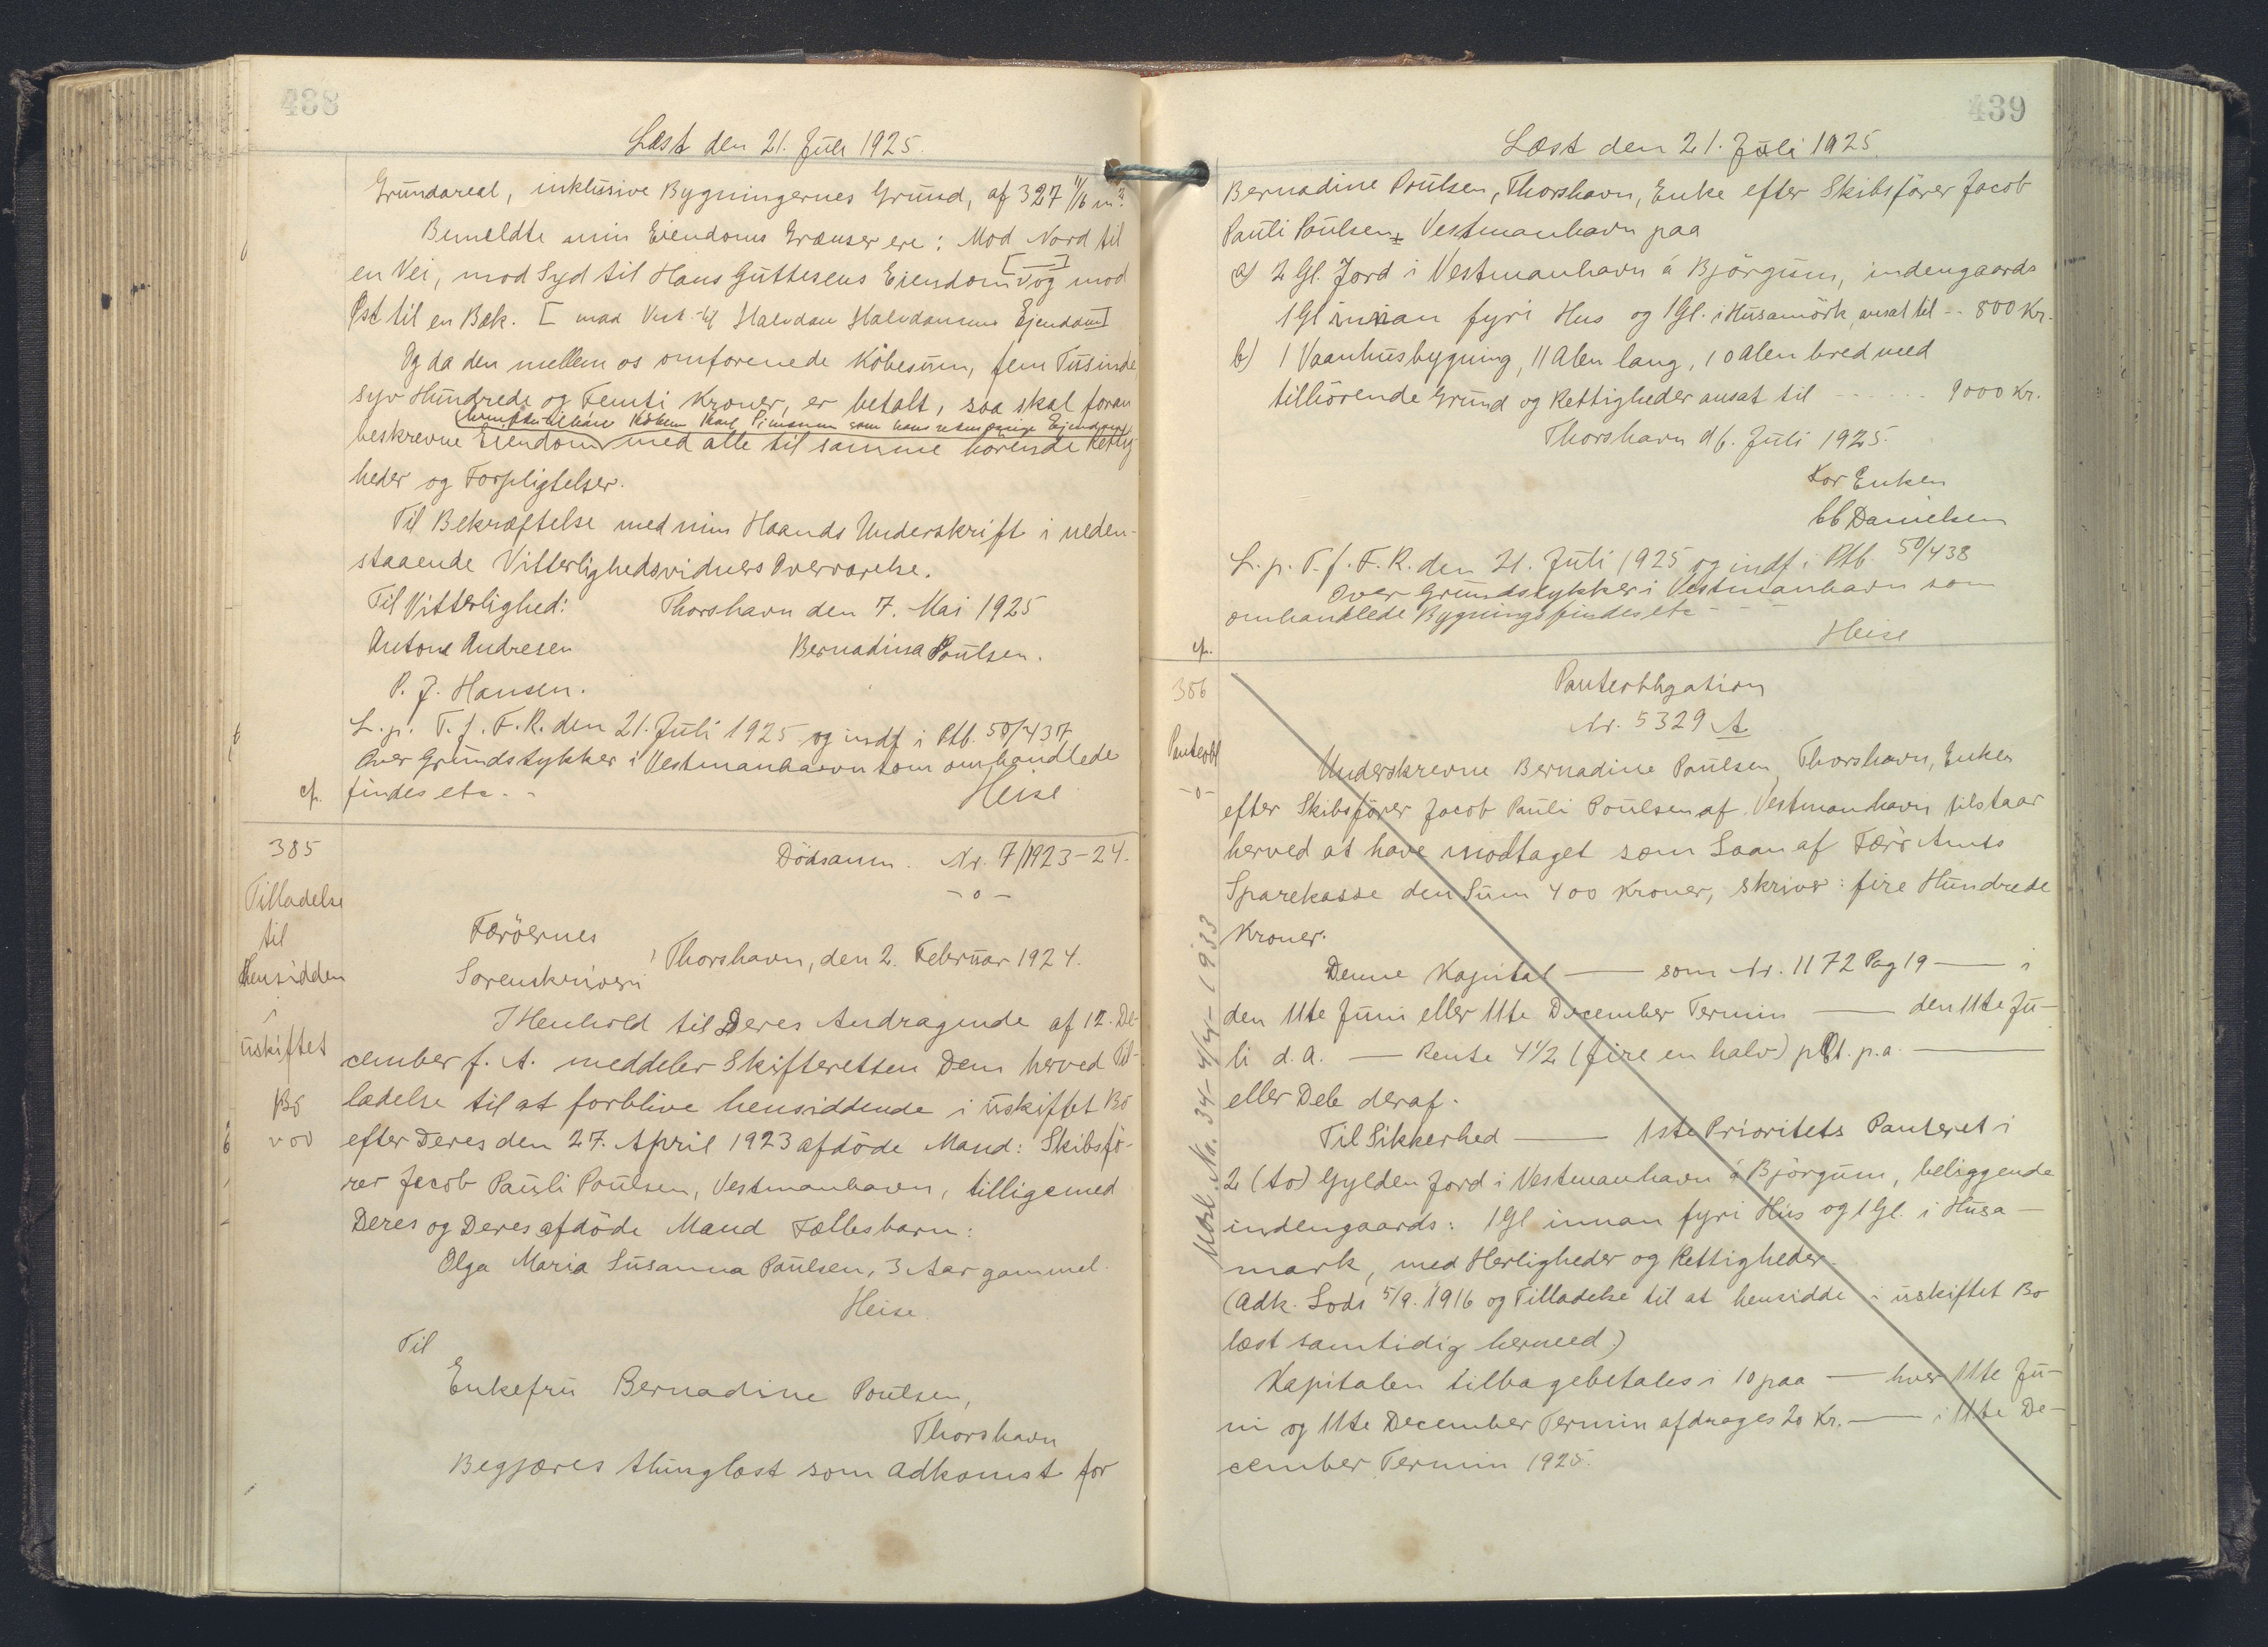 438
Læst den 21. Juli 1925.
Grundareal, inklusive Bygningernes Grund, af 327 11/16 m².
Bemeldte min Eiendoms Grænser ere: Mod Nord til
en Vei, mod Syd til Hans Guttesens Eiendom og mod
Øst til en Bæk. [ mod Vest til Halvdan Halvdansens Ejendom]
Og da den mellem os omforenede Købesum, fem Tusinde
syv Hundrede og Femti Kroner, er betalt, saa skal foran
herefter tilhøre Køberen Karl Simonsen som hans retmæssige Ejendom
beskrevne Eiendom med alle til samme hørende Rettig
heder og Forpligtelser.
Til Bekræftelse med min Haands Underskrift i neden-
staaende Vitterlighedsvidners Overværelse.
Til Vitterlighed: Thorshavn den 7. Mai 1925
Antone Andresen Bernadina Poulsen.
P. J. Hansen.
L. p. T. f. F. R. den 21. Juli 1925 og indf i Ptb. 50/437
Over Grundstykker i Vestmanhavn som omhandlede
cfr. findes etc. - Heise
385
Tilladelse
til
hensidden
i
uskiftet
Bo
Dödsanm. Nr. 7/1923-24.
-o-
Færöernes
Sorenskriveri, Thorshavn, den 2. Februar 1924.
I Henhold til Deres Andragende af 12. De-
cember f. A. meddeler Skifteretten Dem herved Til-
ladelse til at forblive hensiddende i uskiftet Bo
efter Deres den 27. April 1923 afdöde Mand: Skibsfö-
rer Jacob Pauli Poulsen, Vestmanhavn, tilligemed
Deres og Deres afdöde Mand Fællesbarn:
Olga Maria Susanna Poulsen, 3 Aar gammel.
Heise
Til
Enkefru Bernadine Poulsen,
Thorshavn
Begjæres thinglæst som Adkomst for
439
Læst den 21. Juli 1925.
Bernadine Poulsen, Thorshavn, Enke efter Skibsförer Jacob
Pauli Poulsen, Vestmanhavn paa
a) 2 Gl. Jord i Vestmanhavn á Björgum, indengaards
1 Gl innan fyri Hus og 1 Gl. i Husamörk, ansat til -- 800 Kr.
b) 1 Vaanhusbygning, 11 Alen lang, 10 Alen bred med
tilhörende Grund og Rettigheder ansat til ------ 9000 Kr.
Thorshavn d 6. Juli 1925.
For Enken
CC Danielsen
L. p. T. f. F. R. den 21. Juli 1925 og indf. i Ptb. 50/438
Over Grundstykker i Vestmanhavn som
omhandlede Bygning findes etc - - -
cfr. Heise
386
Panteobl
-o-
Panteobligation
Nr. 5329 A
Underskrevne Bernadine Poulsen, Thorshavn, Enken
efter Skibsförer Jacob Pauli Poulsen af Vestmanhavn tilstaar
herved at have modtaget som Laan af Færö Amts
Sparekasse den Sum 400 Kroner, skriver: fire Hundrede
Kroner.
Denne Kapital — som Nr. 1172 Pag 19 — i
den 11te Juni eller 11te December Termin — den 11te Ju-
li d. A. — Rente 4½ (fire en halv) pCt. p.a. —
eller Dele deraf.
Til Sikkerhed — 1ste Prioritets Panteret i
2 (to) Gylden Jord i Vestmanhavn á Björgum, beliggende
indengaards: 1 Gl innan fyri Hus og 1 Gl. i Husa-
mark, med Herligheder og Rettigheder.
(Adk. Lods 5/9. 1916 og Tilladelse til at hensidde i uskiftet Bo
læst samtidig hermed)
Kapitalen tilbagebetales i 10 paa — hver 11te Ju-
ni og 11te December Termin afdrages 20 Kr. — i 11te De-
cember Termin 1925.